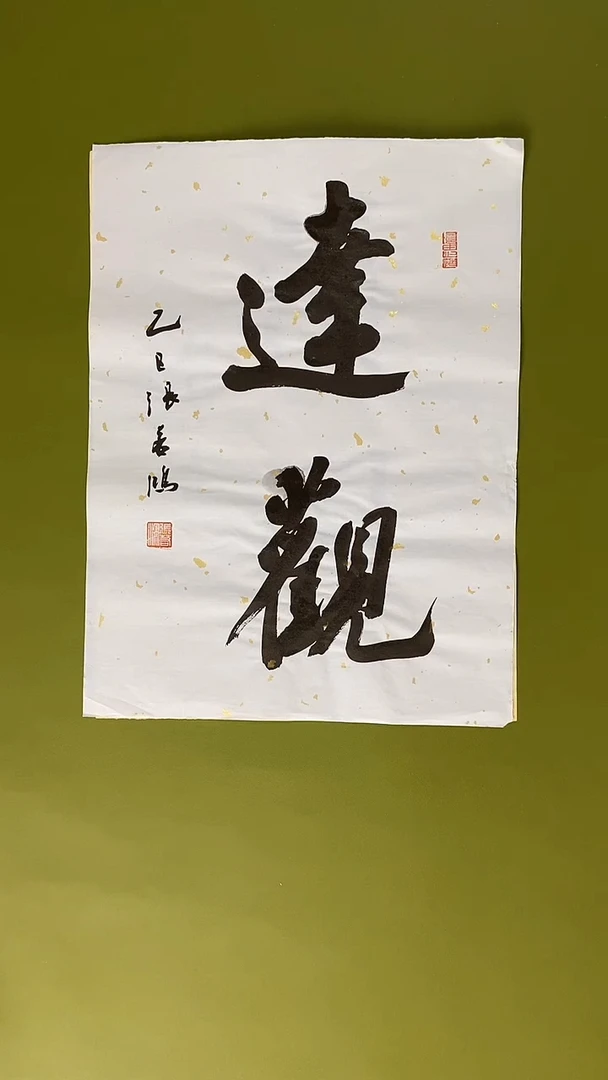 達觀
乙巳張善鴻